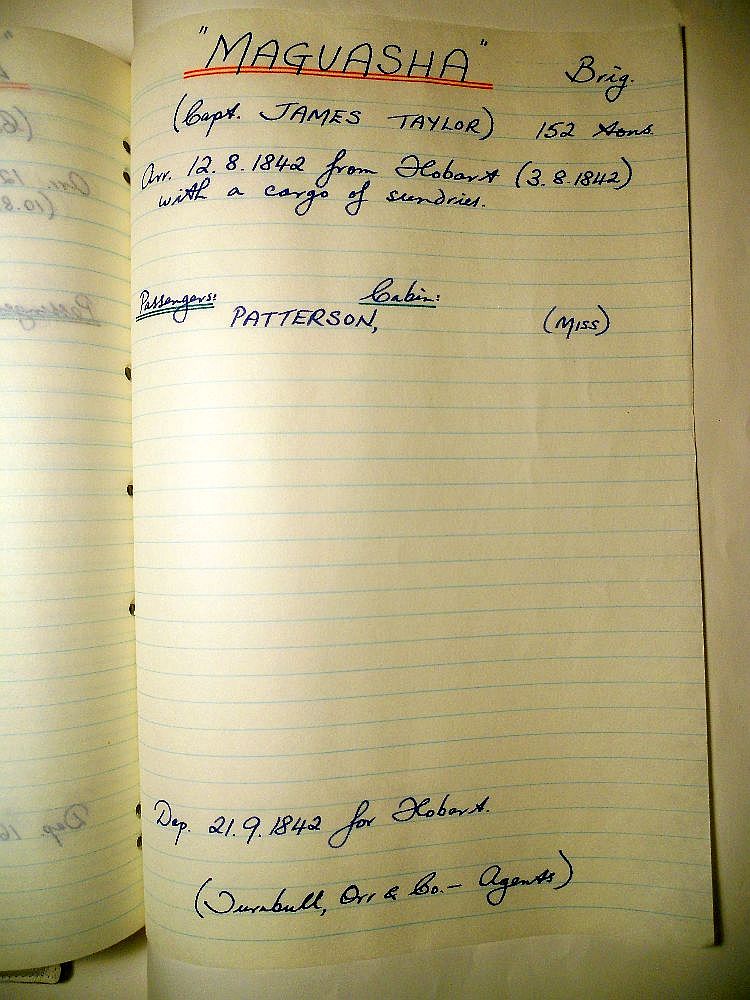 "MAGUASHA" Brig.
(Capt. JAMES TAYLOR) 152 tons.
Arr. 12.8.1842 from Hobart (3.8.1842)
with a cargo of sundries.
Passengers: Cabin:
PATTERSON, (MISS)
Dep. 21.9.1842 for Hobart.
(Turnbull, Orr & Co. - Agents)